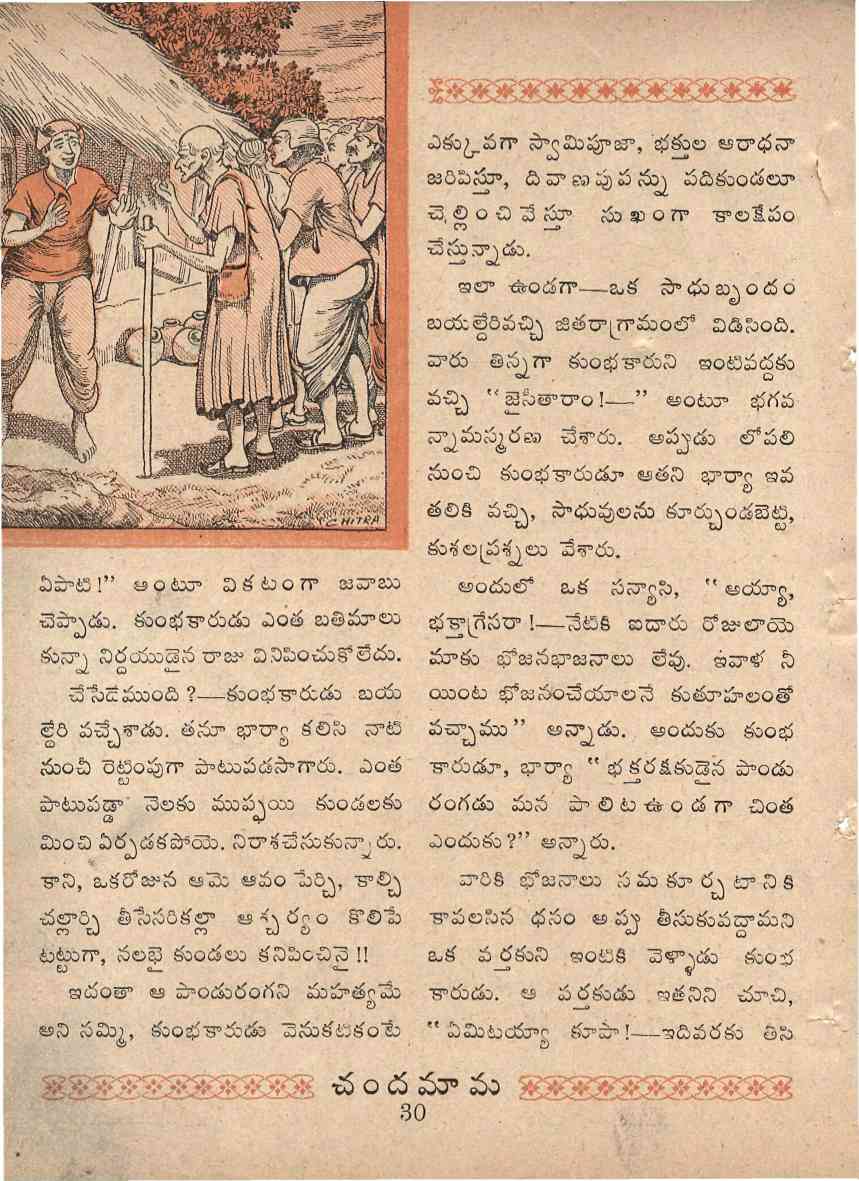 CHITRA
ఏపాటి!” అంటూ వికటంగా జవాబు
చెప్పాడు. కుంభకారుడు ఎంత బతిమాలు
కున్నా నిర్దయుడైన రాజు వినిపించుకోలేదు.
చేసేడేముంది?—కుంభకారుడు బయ
ల్దేరి వచ్చేశాడు. తనూ భార్యా కలిసి నాటి
నుంచీ రెట్టింపుగా పాటుపడసాగారు. ఎంత
పాటుపడ్డా నెలకు ముప్పయి కుండలకు
మించి ఏర్పడకపోయె. నిరాశచేసుకున్నారు.
కాని, ఒకరోజున ఆమె ఆవం పేర్చి, కాల్చి
చల్లార్చి తీసేసరికల్లా ఆశ్చర్యం కొలిపే
టట్టుగా, నలభై కుండలు కనిపించినై!!
ఇదంతా ఆ పాండురంగని మహత్యమే
అని నమ్మి, కుంభకారుడు వెనుకటికంటే
ఎక్కువగా స్వామిపూజా, భక్తుల ఆరాధనా
జరిపిస్తూ, దివాణపుపన్ను పదికుండలూ
చెల్లించివేస్తూ సుఖంగా కాలక్షేపం
చేస్తున్నాడు.
ఇలా ఉండగా—ఒక సాధుబృందం
బయల్దేరివచ్చి జితరాగ్రామంలో విడిసింది.
వారు తిన్నగా కుంభకారుని ఇంటివద్దకు
వచ్చి “జైసీతారాం!—” అంటూ భగవ
న్నామస్మరణ చేశారు. అప్పుడు లోపలి
నుంచి కుంభకారుడూ ఆతని భార్యా ఇవ
తలికి వచ్చి, సాధువులను కూర్చుండబెట్టి,
కుశలప్రశ్నలు వేశారు.
అందులో ఒక సన్యాసి, “అయ్యా,
భక్తాగ్రేసరా!—నేటికి ఐదారు రోజులాయె
మాకు భోజనభాజనాలు లేవు. ఇవాళ నీ
యింట భోజనంచేయాలనే కుతూహలంతో
వచ్చాము” అన్నాడు. అందుకు కుంభ
కారుడూ, భార్యా “భక్తరక్షకుడైన పాండు
రంగడు మన పాలిటఉండగా చింత
ఎందుకు?” అన్నారు.
వారికి భోజనాలు సమకూర్చటానికి
కావలసిన ధనం అప్పు తీసుకువద్దామని
ఒక వర్తకుని ఇంటికి వెళ్ళాడు కుంభ
కారుడు. ఆ వర్తకుడు ఇతనిని చూచి,
“ఏమిటయ్యా కూపా!—ఇదివరకు తీసి
చందమామ
30